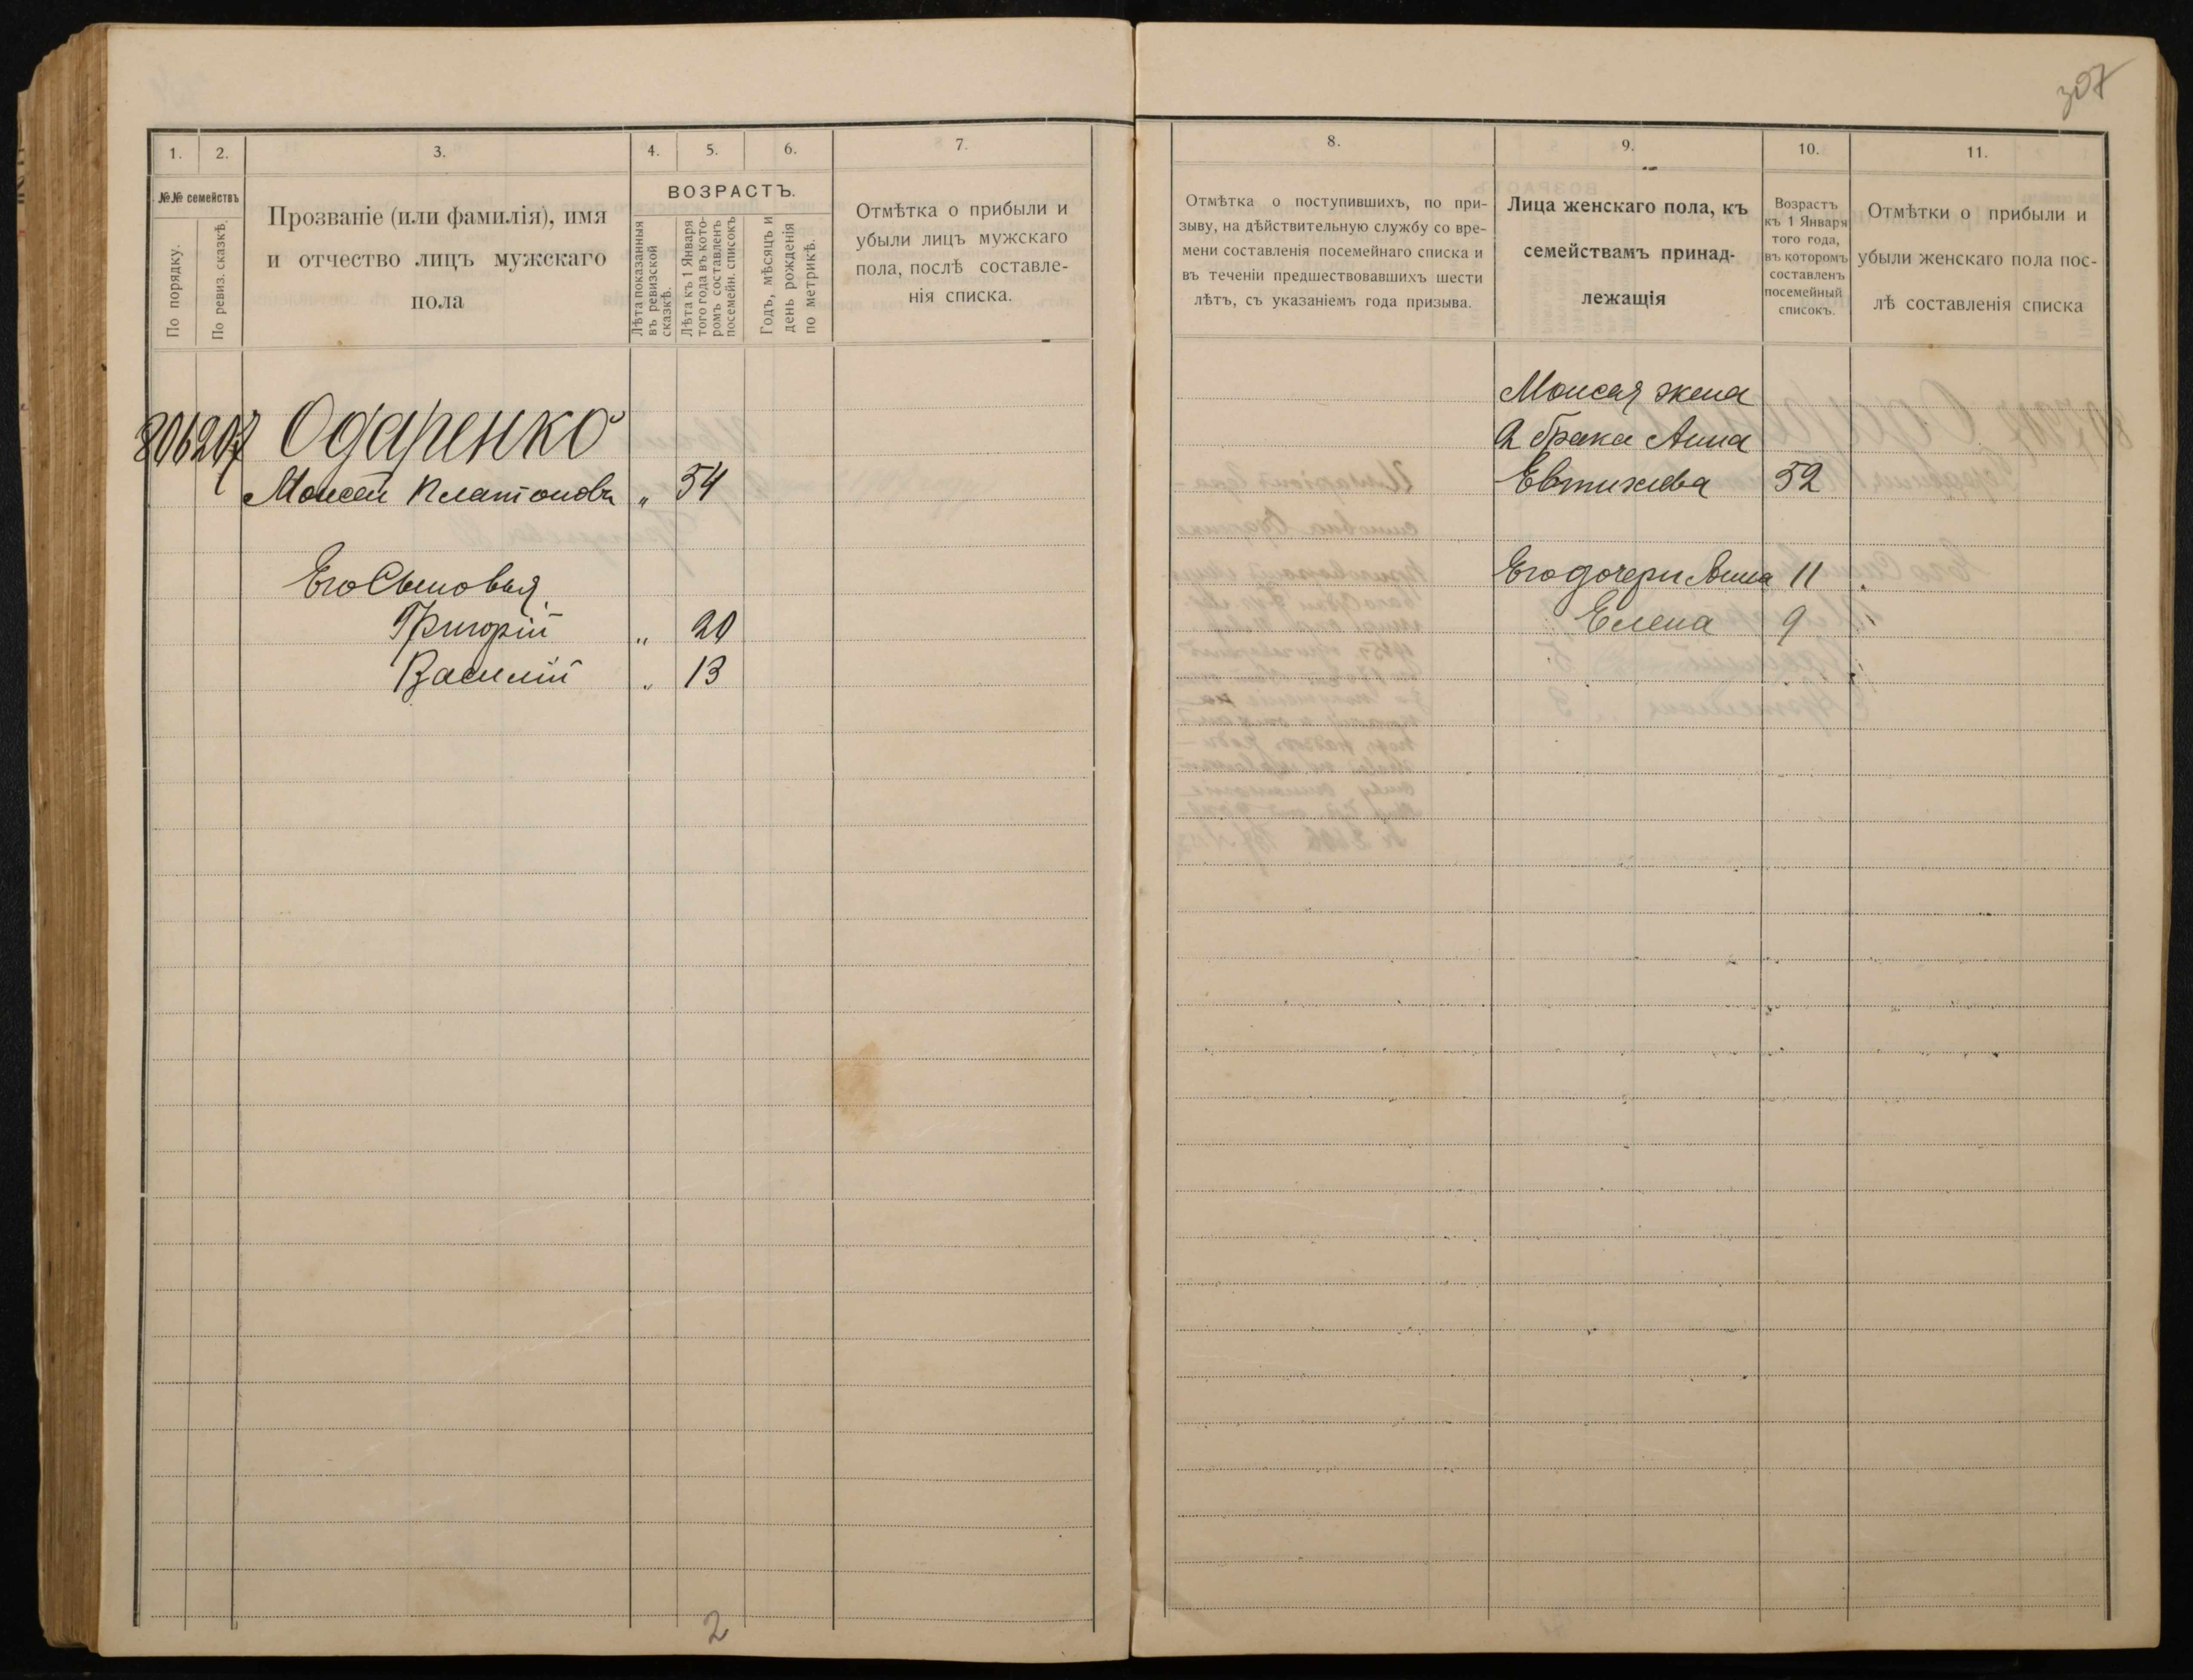 307
1.
2.
3.
4.
5.
6.
7.
№№ семействъ
По порядку.
По ревиз. сказкѣ.
Прозваніе (или фамилія), имя
и отчество лицъ мужскаго
пола
ВОЗРАСТЪ.
Лѣта показанныя
въ ревизской
сказкѣ.
Лѣта къ 1 Января
того года въ кото-
ромъ составленъ
посемейн. списокъ
Годъ, мѣсяцъ и
день рожденія
по метрикѣ.
Отмѣтка о прибыли и
убыли лицъ мужскаго
пола, послѣ составле-
нія списка.
806 207 Одаренко
Моисей Платоновъ " 54
Его Сыновья
Григорій " 20
Василій " 13
2
8.
9.
10.
11.
Отмѣтка о поступившихъ, по при-
зыву, на дѣйствительную службу со вре-
мени составленія посемейнаго списка и
въ теченіи предшествовавшихъ шести
лѣтъ, съ указаніемъ года призыва.
Лица женскаго пола, къ
семействамъ принад-
лежащія
Возрастъ
къ 1 Января
того года,
въ которомъ
составленъ
посемейный
списокъ.
Отмѣтки о прибыли и
убыли женскаго пола пос-
лѣ составленія списка
Моисея жена
2 брака Анна
Евтихіева 52
Его дочери Анна 11
Елена 9